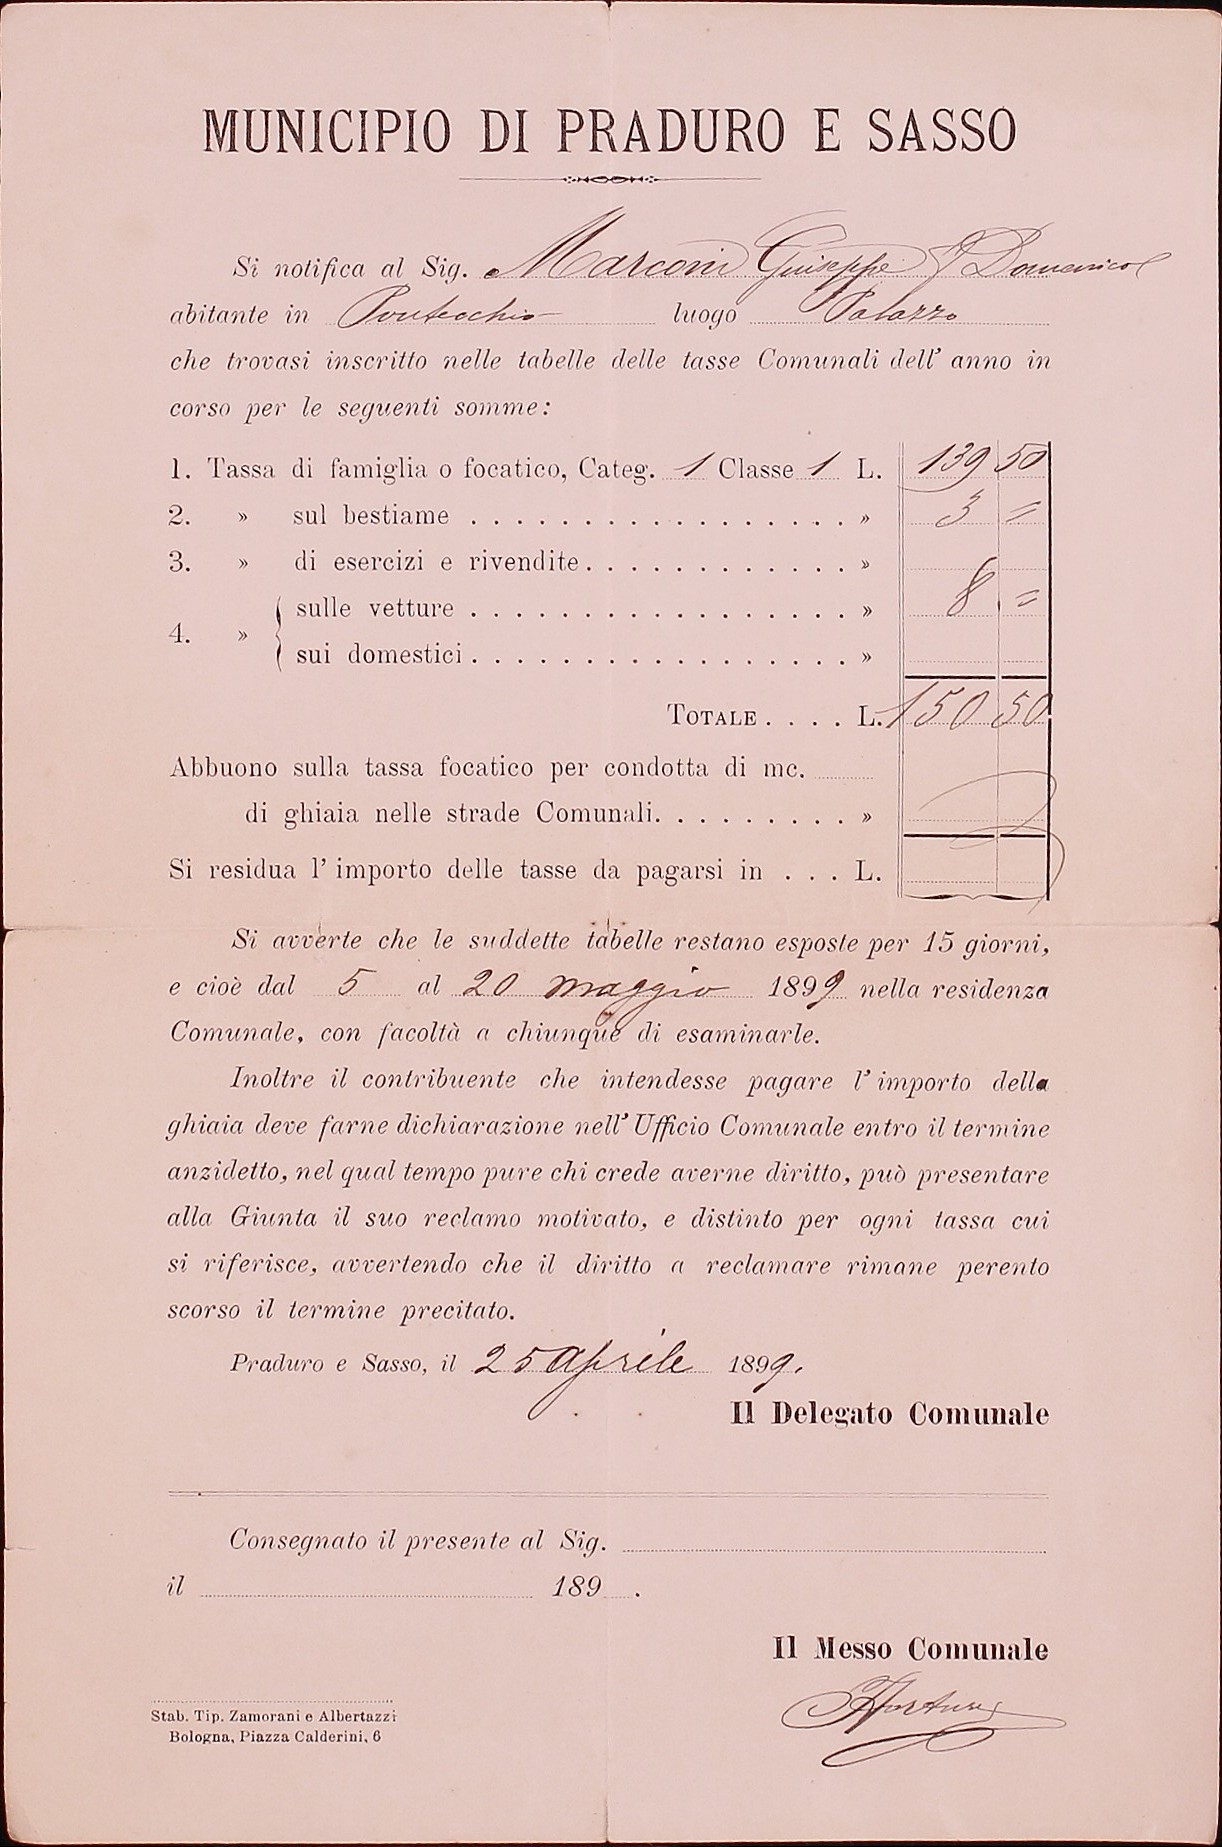 MUNICIPIO DI PRADURO E SASSO
Si notifica al Sig. Marconi Giuseppe f Domenico
abitante in Pontecchio luogo Palazzo
che trovasi inscritto nelle tabelle delle tasse Comunali dell' anno in
corso per le seguenti somme:
1. Tassa di famiglia o focatico, Categ. 1 Classe 1 L. 139 50
2. » sul bestiame . . . . . . . . . . . . . . . . . » 3 =
3. » di esercizi e rivendite . . . . . . . . . . . . »
4. » { sulle vetture . . . . . . . . . . . . . . . . . » 8 =
sui domestici . . . . . . . . . . . . . . . . . »
TOTALE . . . . L. 150 50
Abbuono sulla tassa focatico per condotta di mc.
di ghiaia nelle strade Comunali. . . . . . . . . »
Si residua l' importo delle tasse da pagarsi in . . . L.
Si avverte che le suddette tabelle restano esposte per 15 giorni,
e cioè dal 5 al 20 maggio 1899 nella residenza
Comunale, con facoltà a chiunque di esaminarle.
Inoltre il contribuente che intendesse pagare l' importo della
ghiaia deve farne dichiarazione nell' Ufficio Comunale entro il termine
anzidetto, nel qual tempo pure chi crede averne diritto, può presentare
alla Giunta il suo reclamo motivato, e distinto per ogni tassa cui
si riferisce, avvertendo che il diritto a reclamare rimane perento
scorso il termine precitato.
Praduro e Sasso, il 25 aprile 1899.
Il Delegato Comunale
Consegnato il presente al Sig.
il 189 .
Il Messo Comunale
Stab. Tip. Zamorani e Albertazzi
Bologna, Piazza Calderini, 6